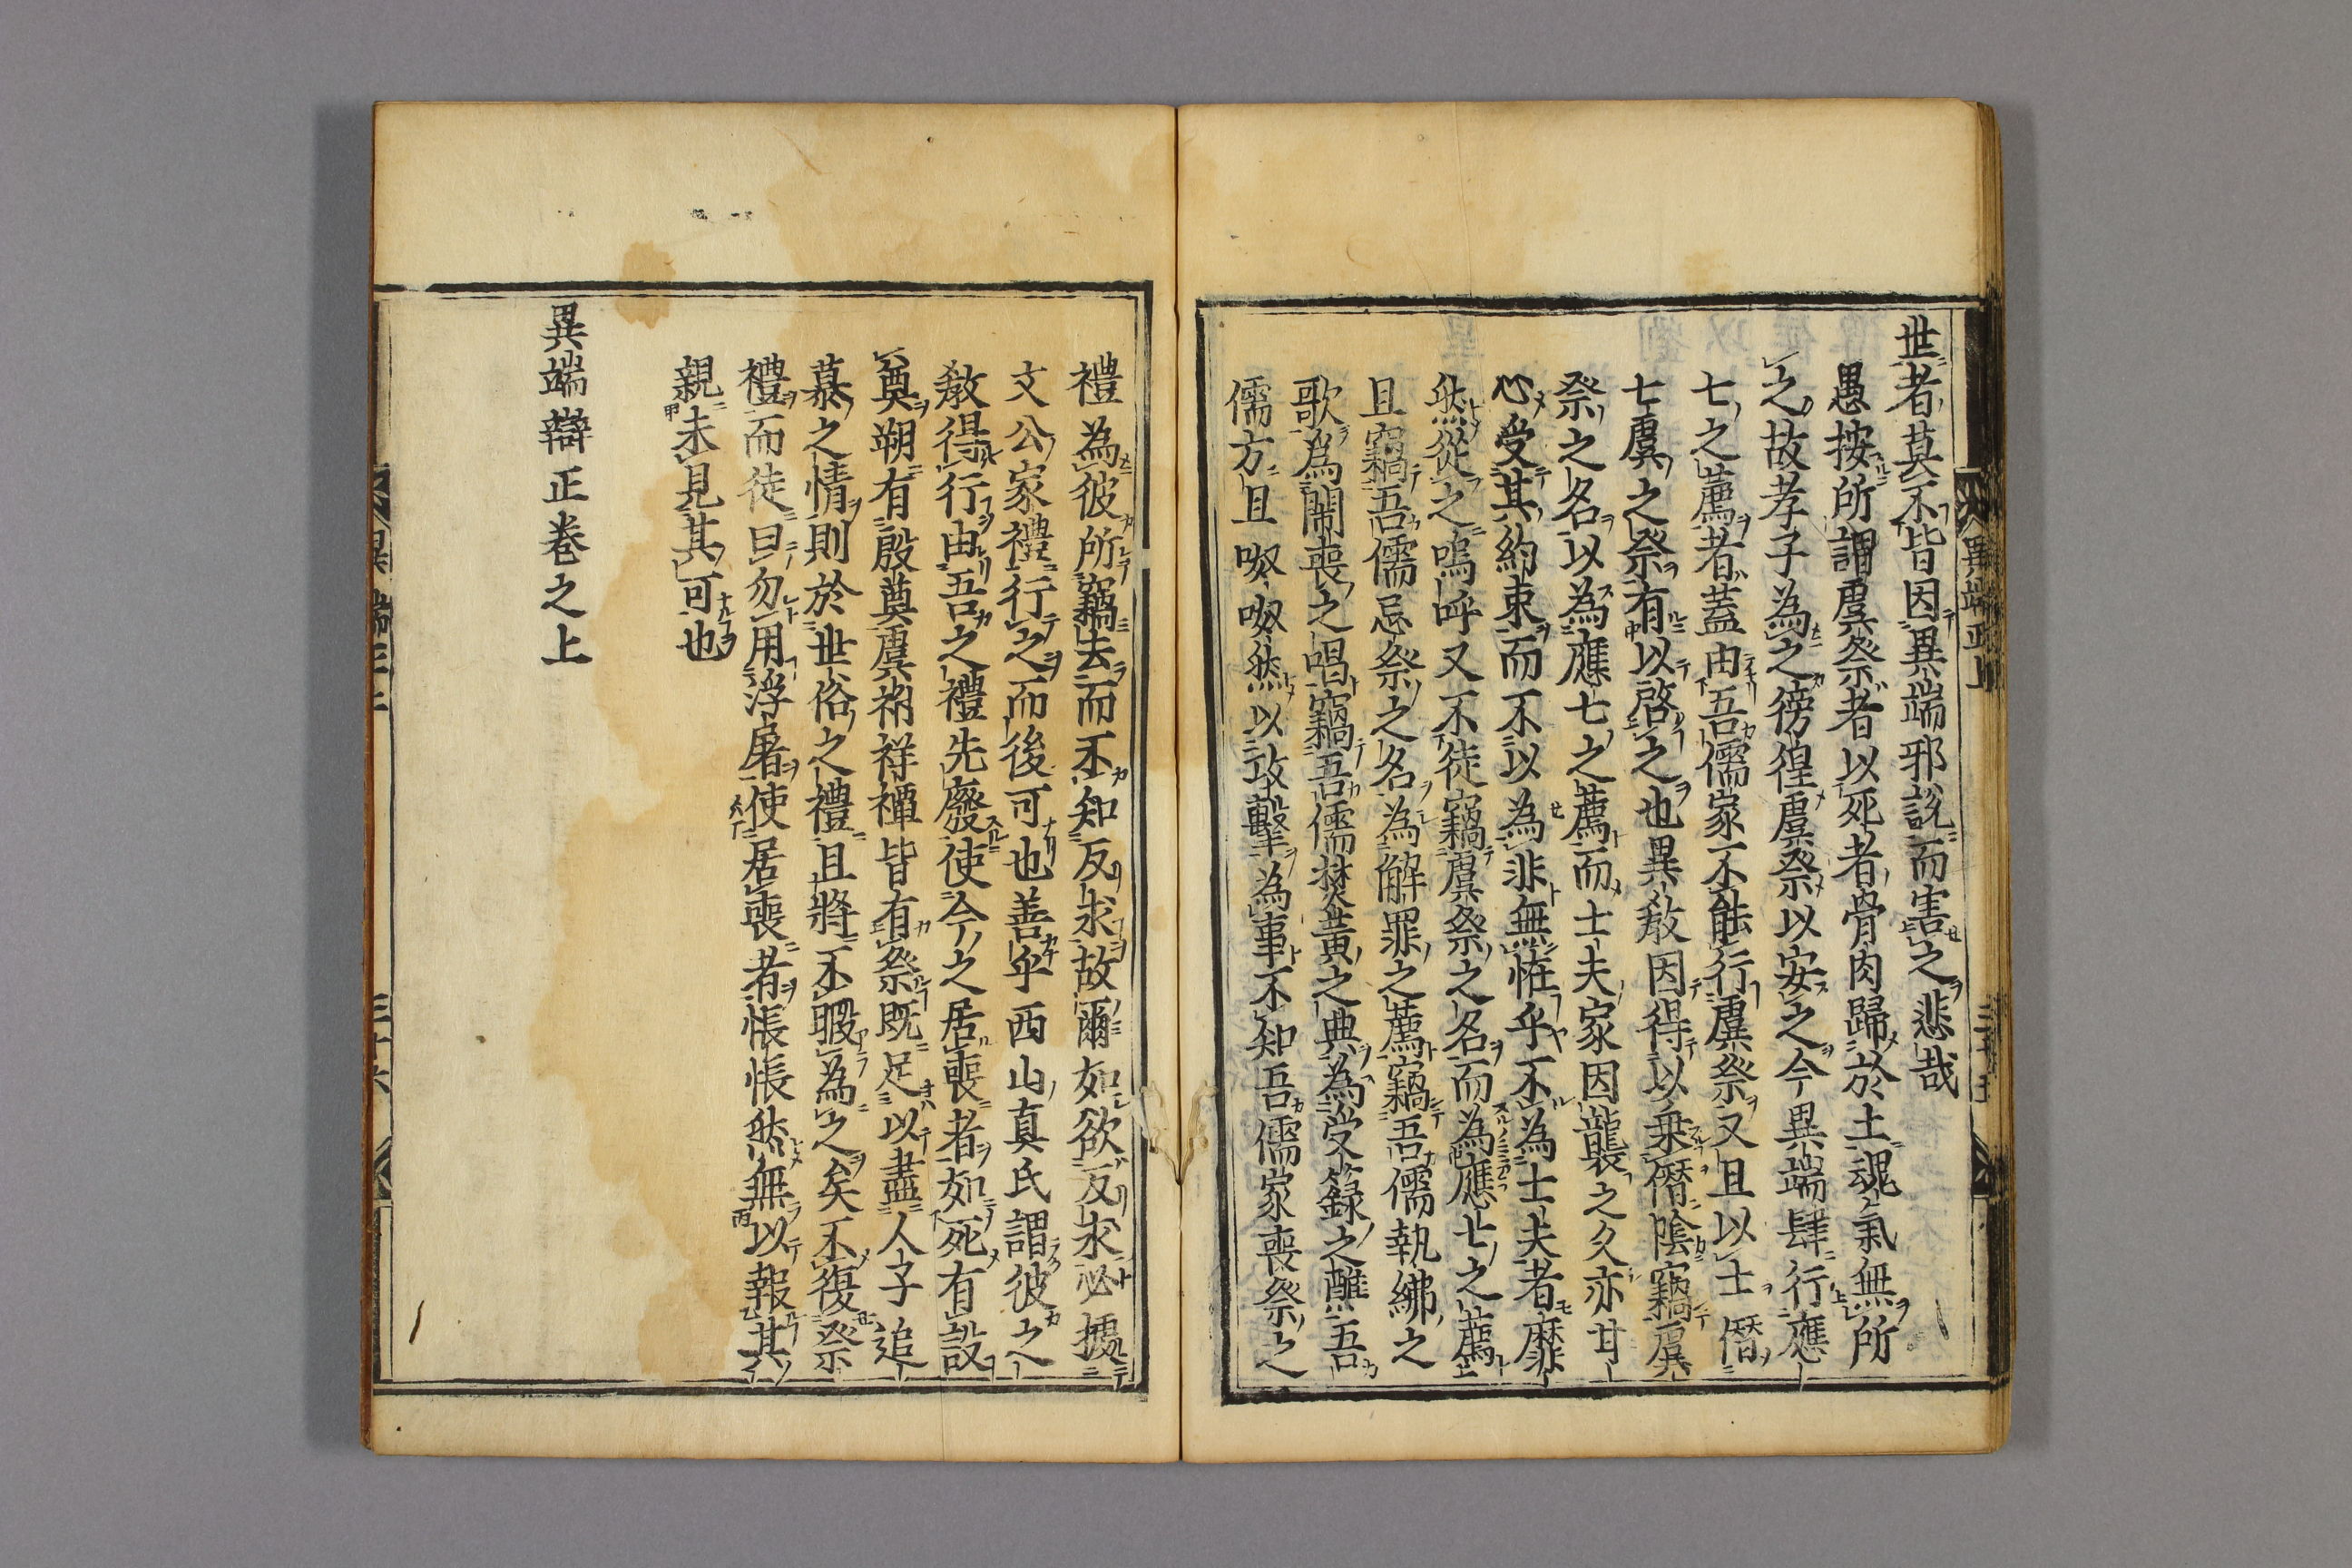 世者莫不皆因異端邪說而害之悲哉
愚按所謂虞祭者以死者骨肉歸於土魂氣無所
之故孝子為之徬徨虞祭以安之今異端肆行應
七之薦者蓋由吾儒家不能行虞祭又且以士僭
七虞之祭有以啓之也異敎因得以乗僭陰竊虞
祭之名以為應七之薦而士夫家因襲之久亦甘
心受其約束而不以為非無恠乎不為士夫者靡
然從之嗚呼又不徒竊虞祭之名而為應七之薦
且竊吾儒忌祭之名為解罪之薦竊吾儒執紼之
歌為鬧喪之唱竊吾儒焚黃之典為受籙之醮吾
儒方且呶呶然以攻擊為事不知吾儒家喪祭之
禮為彼所竊去而不知反求故爾如欲反求必據
文公家禮行之而後可也善乎西山真氏謂彼之
敎得行由吾之禮先廢使今之居喪者如死有設
奠朔有殷奠虞祔祥禫皆有祭既足以盡人子追
慕之情則於世俗之禮且將不暇為之矣不復祭
禮而徒曰勿用浮屠使居喪者悵悵然無以報其
親未見其可也
異端辯正卷之上